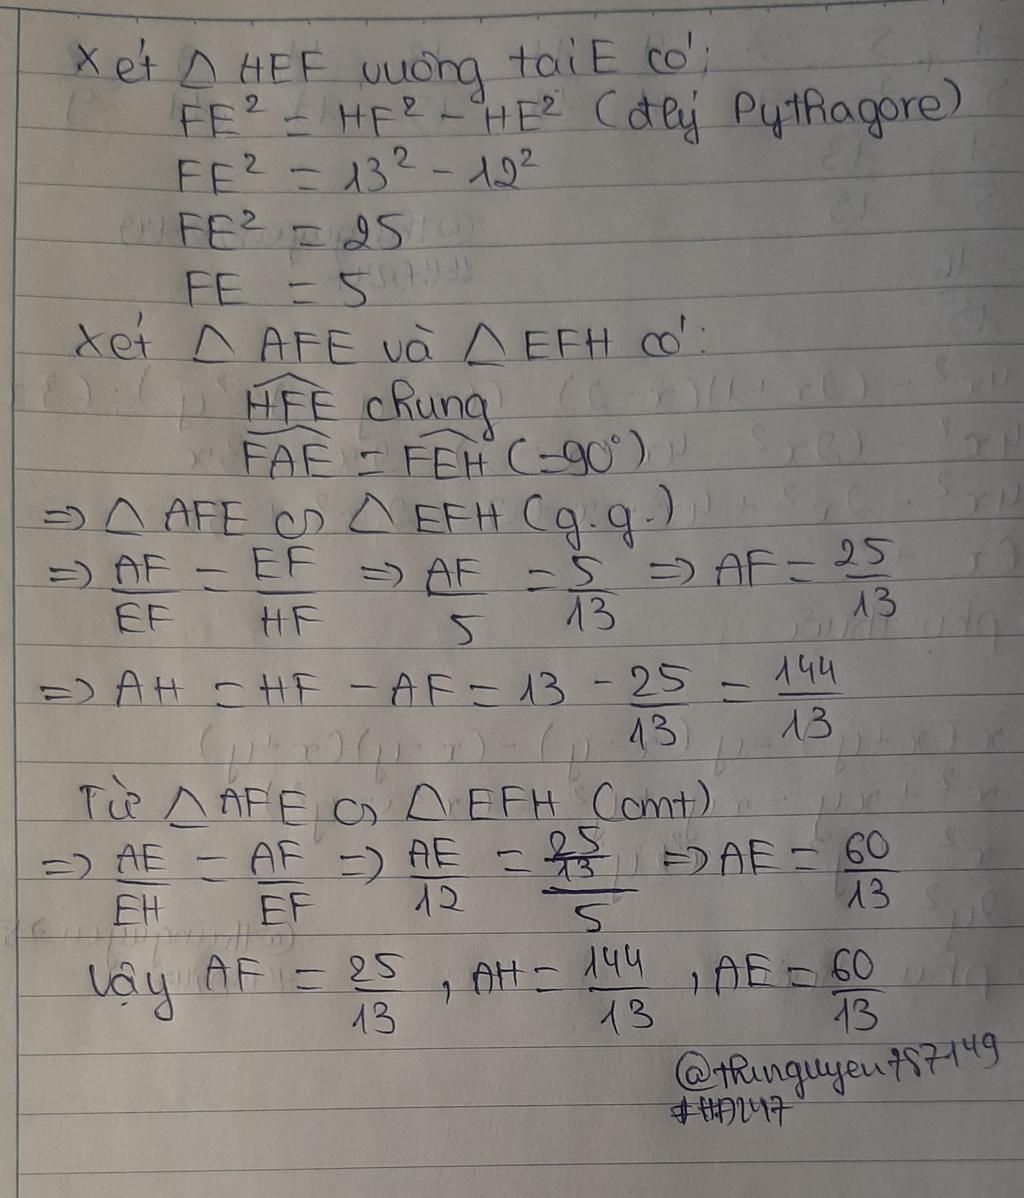 Xét △ HEF vuông tại E có:
FE² = HF² - HE² (đlý Pythagore)
FE² = 13² - 12²
FE² = 25
FE = 5
Xét △ AFE và △ EFH có:
\widehat{HFE} chung
\widehat{FAE} = \widehat{FEH} (=90°)
=> △ AFE ∽ △ EFH (g.g.)
=> AF/EF = EF/HF => AF/5 = 5/13 => AF = 25/13
=> AH = HF - AF = 13 - 25/13 = 144/13
Từ △ AFE ∽ △ EFH (cmt)
=> AE/EH = AF/EF => AE/12 = (25/13)/5 => AE = 60/13
Vậy AF = 25/13, AH = 144/13, AE = 60/13
@thinguyen787149